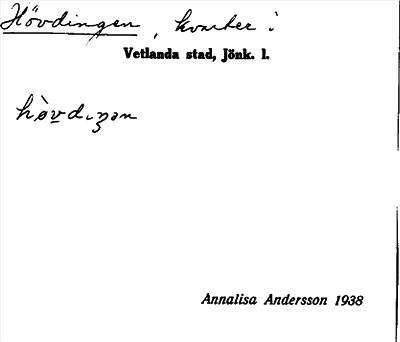 Hövdingen, kvarter i
Vetlanda stad, Jönk. l.
Annalisa Andersson 1938